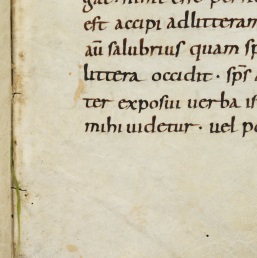 est accipi adlitteram
aū salubrius quam sp
littera occidit · sp̄s
ter exposui uerba is
mihi uidetur · uel p